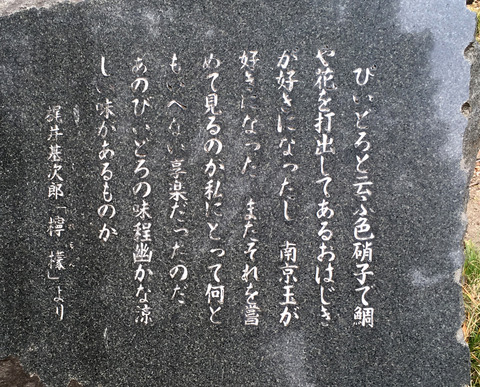 びいどろと云ふ色硝子で鯛
や花を打出してあるおはじき
が好きになったし 南京玉が
好きになった またそれを嘗
めて見るのが私にとって何と
もいへない享楽だったのだ
あのびいどろの味程幽かな涼
しい味があるものか
梶井基次郎「檸檬」より